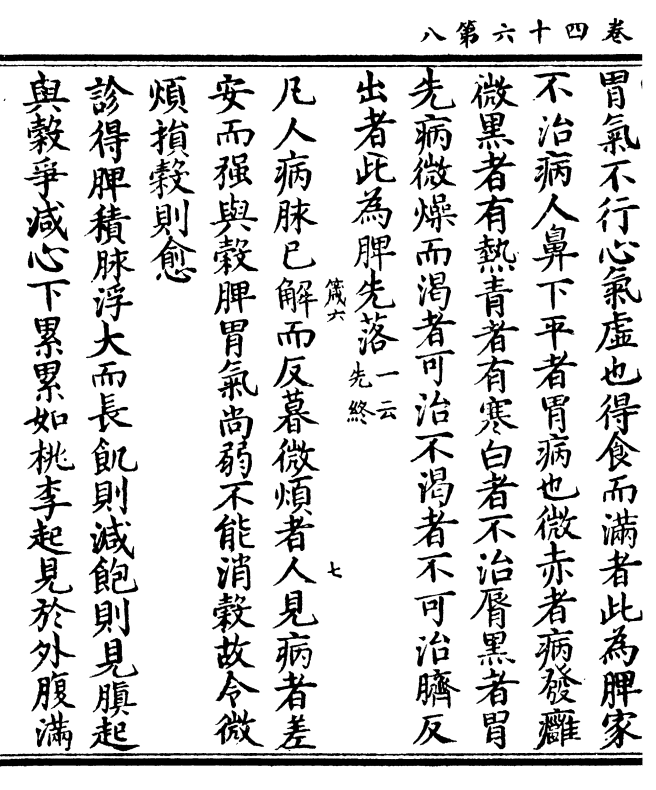 卷四十六第八
胃氣不行心氣虛也得食而滿者此為脾家
不治病人鼻下平者胃病也微赤者病發癰
微黑者有熱青者有寒白者不治脣黑者胃
先病微燥而渴者可治不渴者不可治臍反
出者此為脾先落一云先終
凡人病脉已解而反暮微煩者人見病者差
安而强與穀脾胃氣尚弱不能消穀故令微
煩損穀則愈
診得脾積脉浮大而長飢則減飽則見䐜起
與穀爭減心下累累如桃李起見於外腹滿
箴六
七